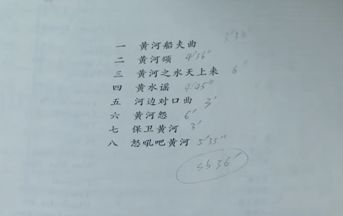 一 黄河船夫曲
二 黄河颂 4'56"
三 黄河之水天上来 6"
四 黄水谣 4'45"
五 河边对口曲 3'
六 黄河怨 6'
七 保卫黄河 3'
八 怒吼吧黄河 5'35"